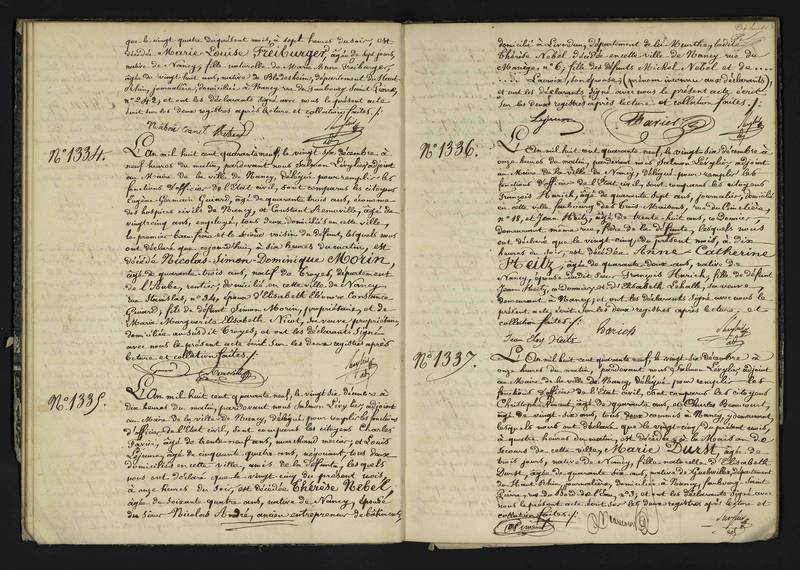 que le vingt quatre du présent mois, à sept heures du soir, est
décédée Marie Louise Freiburger, âgée de sept jours,
native de Nancy, fille naturelle de Marie Anne Freiburger,
âgée de vingt huit ans, native de département du Haut
Rhin, journalière, domiciliée à Nancy rue du faubourg Saint
n° 242, et ont les déclarants signé avec nous le présent acte
écrit sur les deux registres après lecture et collation faites./.
N° 1334.
L'An mil huit cent quarante neuf, le vingt six décembre à
neuf heures du matin, pardevant nous Salmon Lévylier, adjoint
au Maire de la ville de Nancy, délégué pour remplir les
fonctions d'officier de l'Etat civil, sont comparus les citoyens
Eugène Germain Guiard, âgé de quarante trois ans, économe
des hospices civils de Nancy, et Constant âgé de
vingt cinq ans, employé, tous deux domiciliés en cette ville,
le premier beau frère et le second voisin du défunt, lesquels nous
ont déclaré que cejourd'hui, à six heures du matin, est
décédé Nicolas-Simon-Dominique Morin,
âgé de quarante trois ans, natif de Troyes, département
de l'Aube, rentier, domicilié en cette ville de Nancy
rue Stanislas, n° 34, époux d'Elisabeth Eléonore Constance
Guiard, fils de défunt Simon Morin, propriétaire, et de
Marie Marguerite Elisabeth Nicot, sa veuve, propriétaire,
domiciliée au susdit Troyes, et ont les déclarants signé
avec nous le présent acte écrit sur les deux registres après
lecture et collation faites./.
N° 1335.
L'An mil huit cent quarante neuf, le vingt six décembre à
dix heures du matin, pardevant nous Salmon Lévylier, adjoint
au Maire de la ville de Nancy, délégué pour remplir les fonctions
d'officier de l'Etat civil, sont comparus les citoyens Charles
âgé de trente neuf ans, marchand mercier, et Louis
Lejeune, âgé de cinquante quatre ans, négociant, tous deux
domiciliés en cette ville, amis de la défunte, lesquels
nous ont déclaré que le vingt cinq du présent mois,
à onze heures du soir, est décédée Thérèse Nebel,
âgée de soixante quatre ans, native de Nancy, épouse
du sieur Nicolas André, ancien entrepreneur de bâtiments,
domicilié à département de la Meurthe, ladite
Thérèse Nebel décédée en cette ville de Nancy rue du
Manège, n° 6, fille des défunts Michel Nebel et de .....
..... Lacroix, son épouse, (prénom inconnu aux déclarants),
et ont les déclarants signé avec nous le présent acte écrit
sur les deux registres après lecture et collation faites./.
Lejeune
N° 1336.
L'An mil huit cent quarante neuf, le vingt-six décembre à
onze heures du matin, pardevant nous Salmon Lévylier, adjoint
au Maire de la ville de Nancy, délégué pour remplir les
fonctions d'officier de l'Etat civil, sont comparus les citoyens
François Harich, âgé de quarante sept ans, journalier, domicilié
en cette ville faubourg des Trois Maisons, rue du Cimetière,
n° 18, et Jean Heitz, âgé de trente huit ans, cordonnier,
demeurant même rue, frère de la défunte, lesquels nous
ont déclaré que le vingt-cinq du présent mois, à dix
heures du soir, est décédée Anne-Catherine
Heitz, âgée de quarante deux ans, native de
Nancy, épouse dudit sieur François Harich, fille de défunt
Jean Heitz, cordonnier, et d'Elisabeth sa veuve,
demeurant à Nancy, et ont les déclarants signé avec nous le
présent acte écrit sur les deux registres après lecture, et
collation faites./.
Harich
N° 1337.
L'An mil huit cent quarante neuf, le vingt six décembre à
onze heures du matin, pardevant nous Salmon Lévylier, adjoint
au Maire de la ville de Nancy, délégué pour remplir les
fonctions d'officier de l'Etat civil, sont comparus les citoyens
Christophe âgé de quarante ans, et Charles
âgé de vingt six ans, tous deux commis à Nancy, y demeurant,
lesquels nous ont déclaré que le vingt-cinq du présent mois,
à quatre heures du matin, est décédée à la Maison de
Secours de cette ville, Marie Durst, âgée de
trois jours, native de Nancy, fille naturelle d'Elisabeth
Durst, âgée de quarante six ans, native de département
du Haut-Rhin, journalière, domiciliée à Nancy, faubourg Saint
Pierre, rue du Bord de l'eau, n° 3, et ont les déclarants signé avec
nous le présent acte écrit sur les deux registres après lecture et
collation faites./.